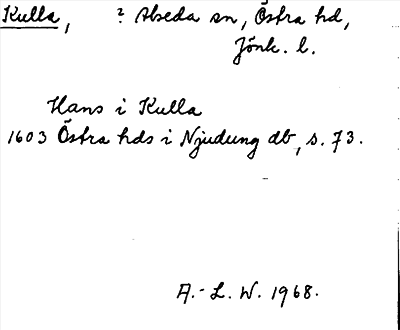 Kulla, ? Alseda sn, Östra hd,
Jönk. l.
Hans i Kulla
1603 Östra hds i Njudung db, s. 73.
A.-L. W. 1968.